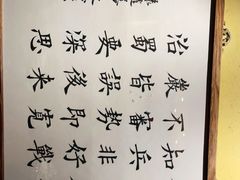 知兵非好戰
不審勢即寬
嚴皆誤後來
治蜀要深思